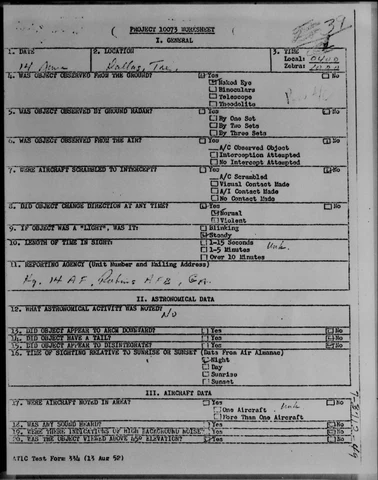 PROJECT 10073 WORKSHEET
I. GENERAL
1. DATE
2. LOCATION
3. TIME
14 June
Dallas, Tex
Local: 0400
Zebra:
4. WAS OBJECT OBSERVED FROM THE GROUND? Yes No
Naked Eye
Binoculars
Telescope
Theodolite
5. WAS OBJECT OBSERVED BY GROUND RADAR? Yes No
By One Set
By Two Sets
By Three Sets
6. WAS OBJECT OBSERVED FROM THE AIR? Yes No
A/C Observed Object
Interception Attempted
No Intercept Attempted
7. WERE AIRCRAFT SCRAMBLED TO INTERCEPT? Yes No
A/C Scrambled
Visual Contact Made
A/I Contact Made
No Contact Made
8. DID OBJECT CHANGE DIRECTION AT ANY TIME? Yes No
Normal
Violent
9. IF OBJECT WAS A "LIGHT", WAS IT: Blinking
Steady
10. LENGTH OF TIME IN SIGHT: 1-15 Seconds Unk.
1-5 Minutes
Over 10 Minutes
11. REPORTING AGENCY (Unit Number and Mailing Address)
Hq. 14 AF, Robins AFB, Ga.
II. ASTRONOMICAL DATA
12. WHAT ASTRONOMICAL ACTIVITY WAS NOTED?
No
13. DID OBJECT APPEAR TO ARCH DOWNWARD? Yes No
14. DID OBJECT HAVE A TAIL? Yes No
15. DID OBJECT APPEAR TO DISINTEGRATE? Yes No
16. TIME OF SIGHTING RELATIVE TO SUNRISE OR SUNSET (Data From Air Almanac)
Night
Day
Sunrise
Sunset
III. AIRCRAFT DATA
17. WERE AIRCRAFT NOTED IN AREA? Yes No
One Aircraft Unk
More Than One Aircraft
18. WAS ANY SOUND HEARD? Yes No
19. WERE THERE INDICATIONS OF HIGH BACKGROUND NOISE? Yes No
20. WAS THE OBJECT VIEWED ABOVE 45° ELEVATION? Yes No
ATIC Test Form 334 (13 Aug 52)